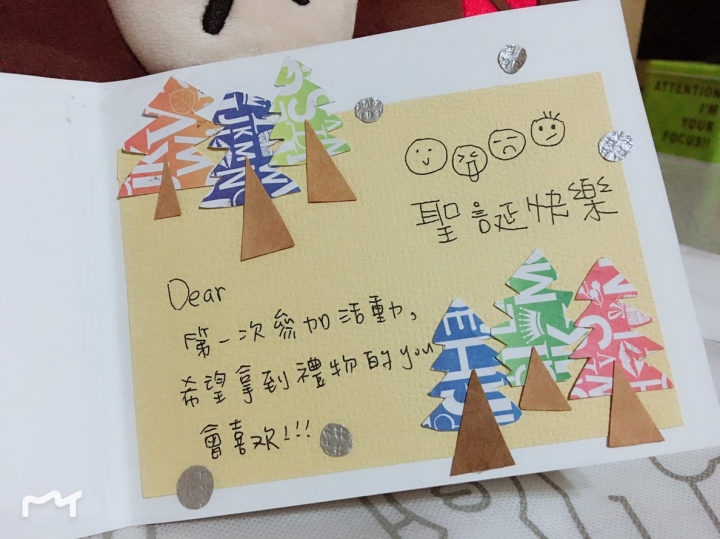 聖誕快樂
Dear
第一次參加活動,
希望拿到禮物的you
會喜欢!!!
ATTENTION
I'M
YOUR
FOCUS!!